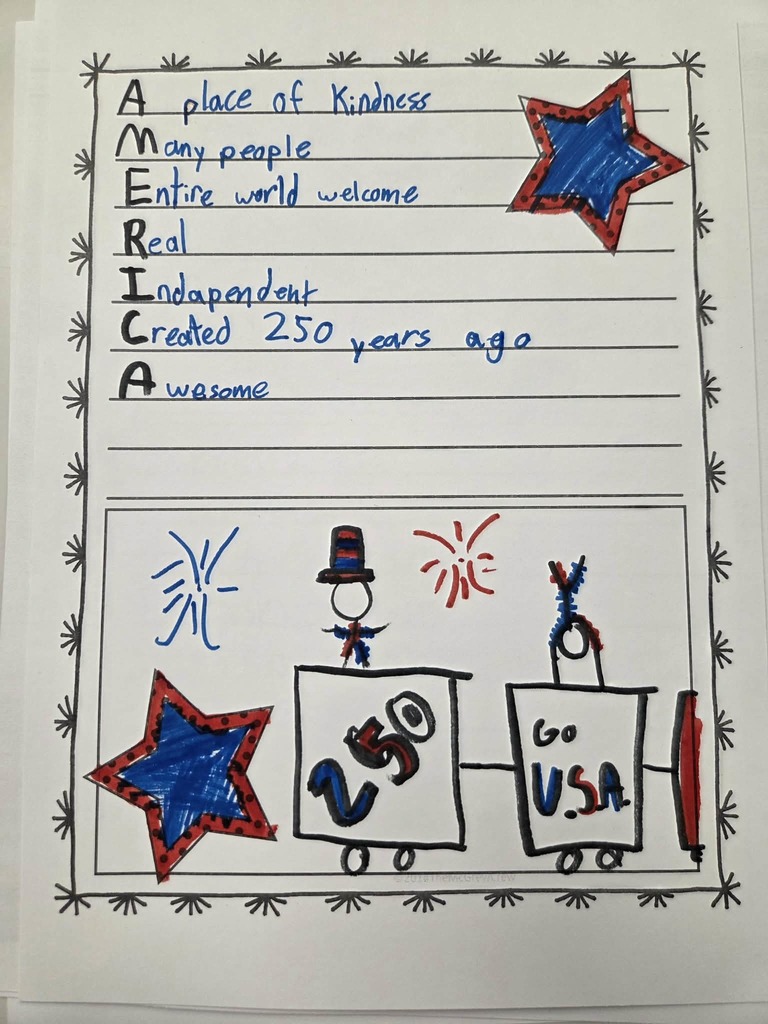 A place of Kindness
Many people
Entire world welcome
Real
Indapendent
Created 250 years ago
Awesome
250
Go
U.S.A.